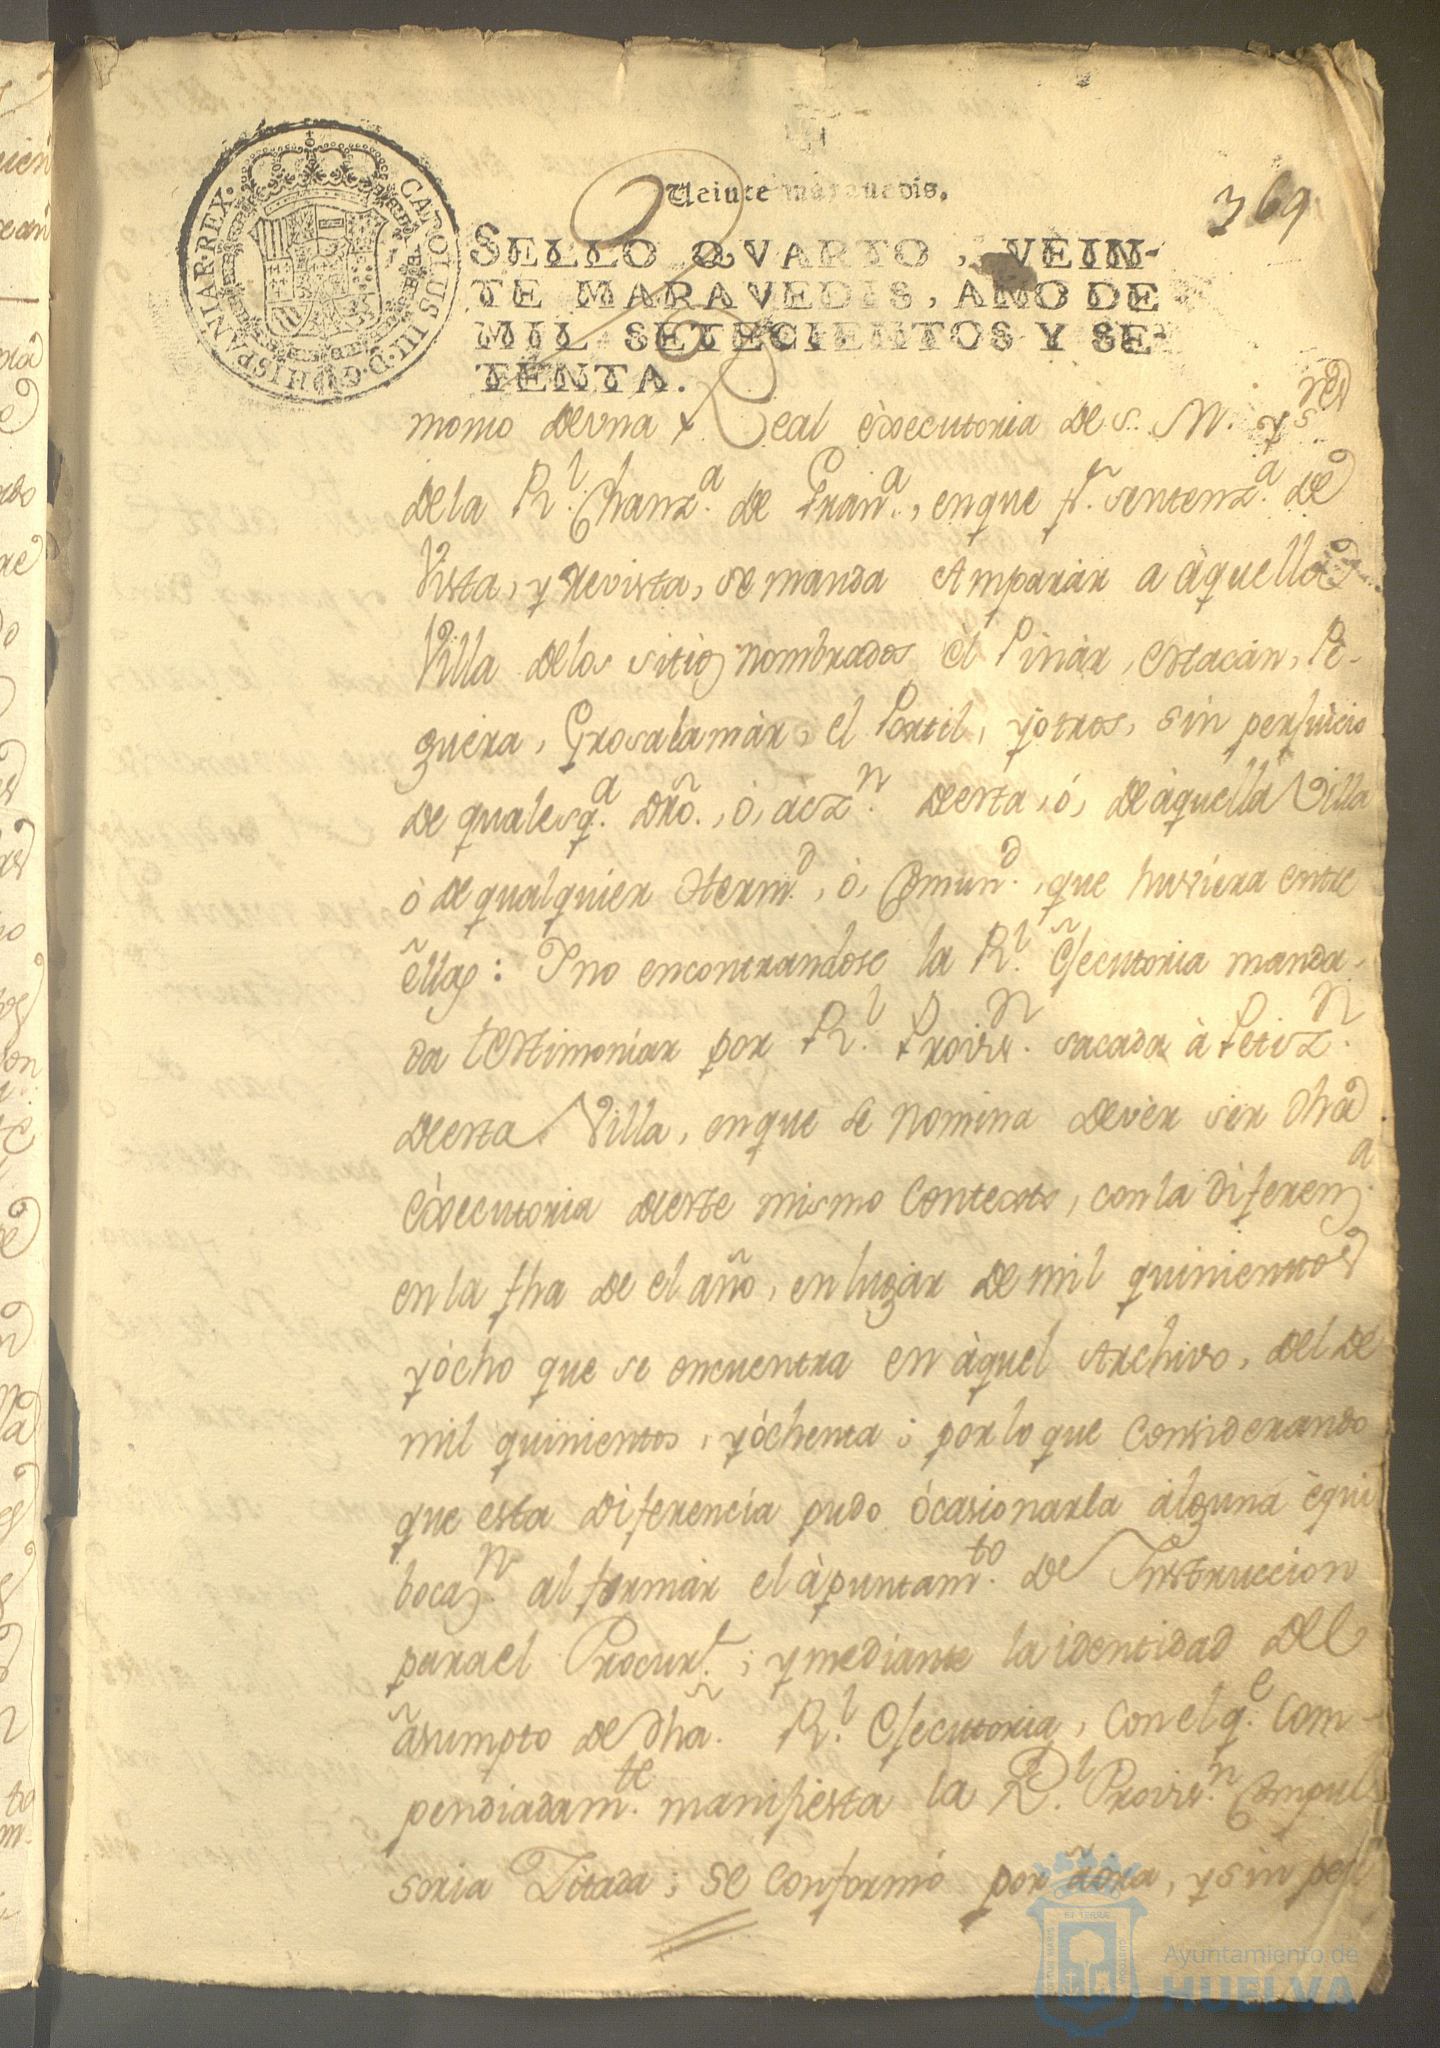 CAROLUS III. D. G. HISPANIAR. REX.
Veinte maravedis.
369
SELLO QVARTO, VEIN-
TE MARAVEDIS, AÑO DE
MIL SETECIENTOS Y SE-
TENTA.
monio de vna Real êxecutoria de S. M. y Sres
de la Rl. Chanza. de Grana., en que pr. sentenza. de
Vista, y Revista, se manda Amparàr a àquella
Villa de los sitios nombrados el Pinàr, estacàn, Pe-
guera, Grosalamàr, el Portil, y òtros, sin perjuicio
de qualesqa. dr̃o., ò, àczn. de esta, ó, de àquella Villa
ò de qualquier Hermd., ò, Comund., que huviera entre
ellas: Y no encontrandose la Rl. Ejecutoria manda-
da testimoniar por Rl. Provisn. sacada à Petizn.
de esta Villa, en que se nomina devèr sèr dha
êxecutoria de este mismo Contexto, con la diferenza.
en la fha de el año, en lugàr de mil quinientos
y òcho que se encuentra en àquel Archivo, del de
mil quinientos, y óchenta; por lo que Considerando
que esta diferencia pudo ócasionarla àlguna èqui
bocazn. al formàr el àpuntamto. de Instruccion
para el Procurr.; y mediante la identidad del
asumpto de dha. Rl. Ejecutoria, con el qe. Com-
pendiadamte. manifiesta la Rl. Provisn. Compul
soria Zitada; se Conformó por aora, y sin perj
Ayuntamiento de
HUELVA